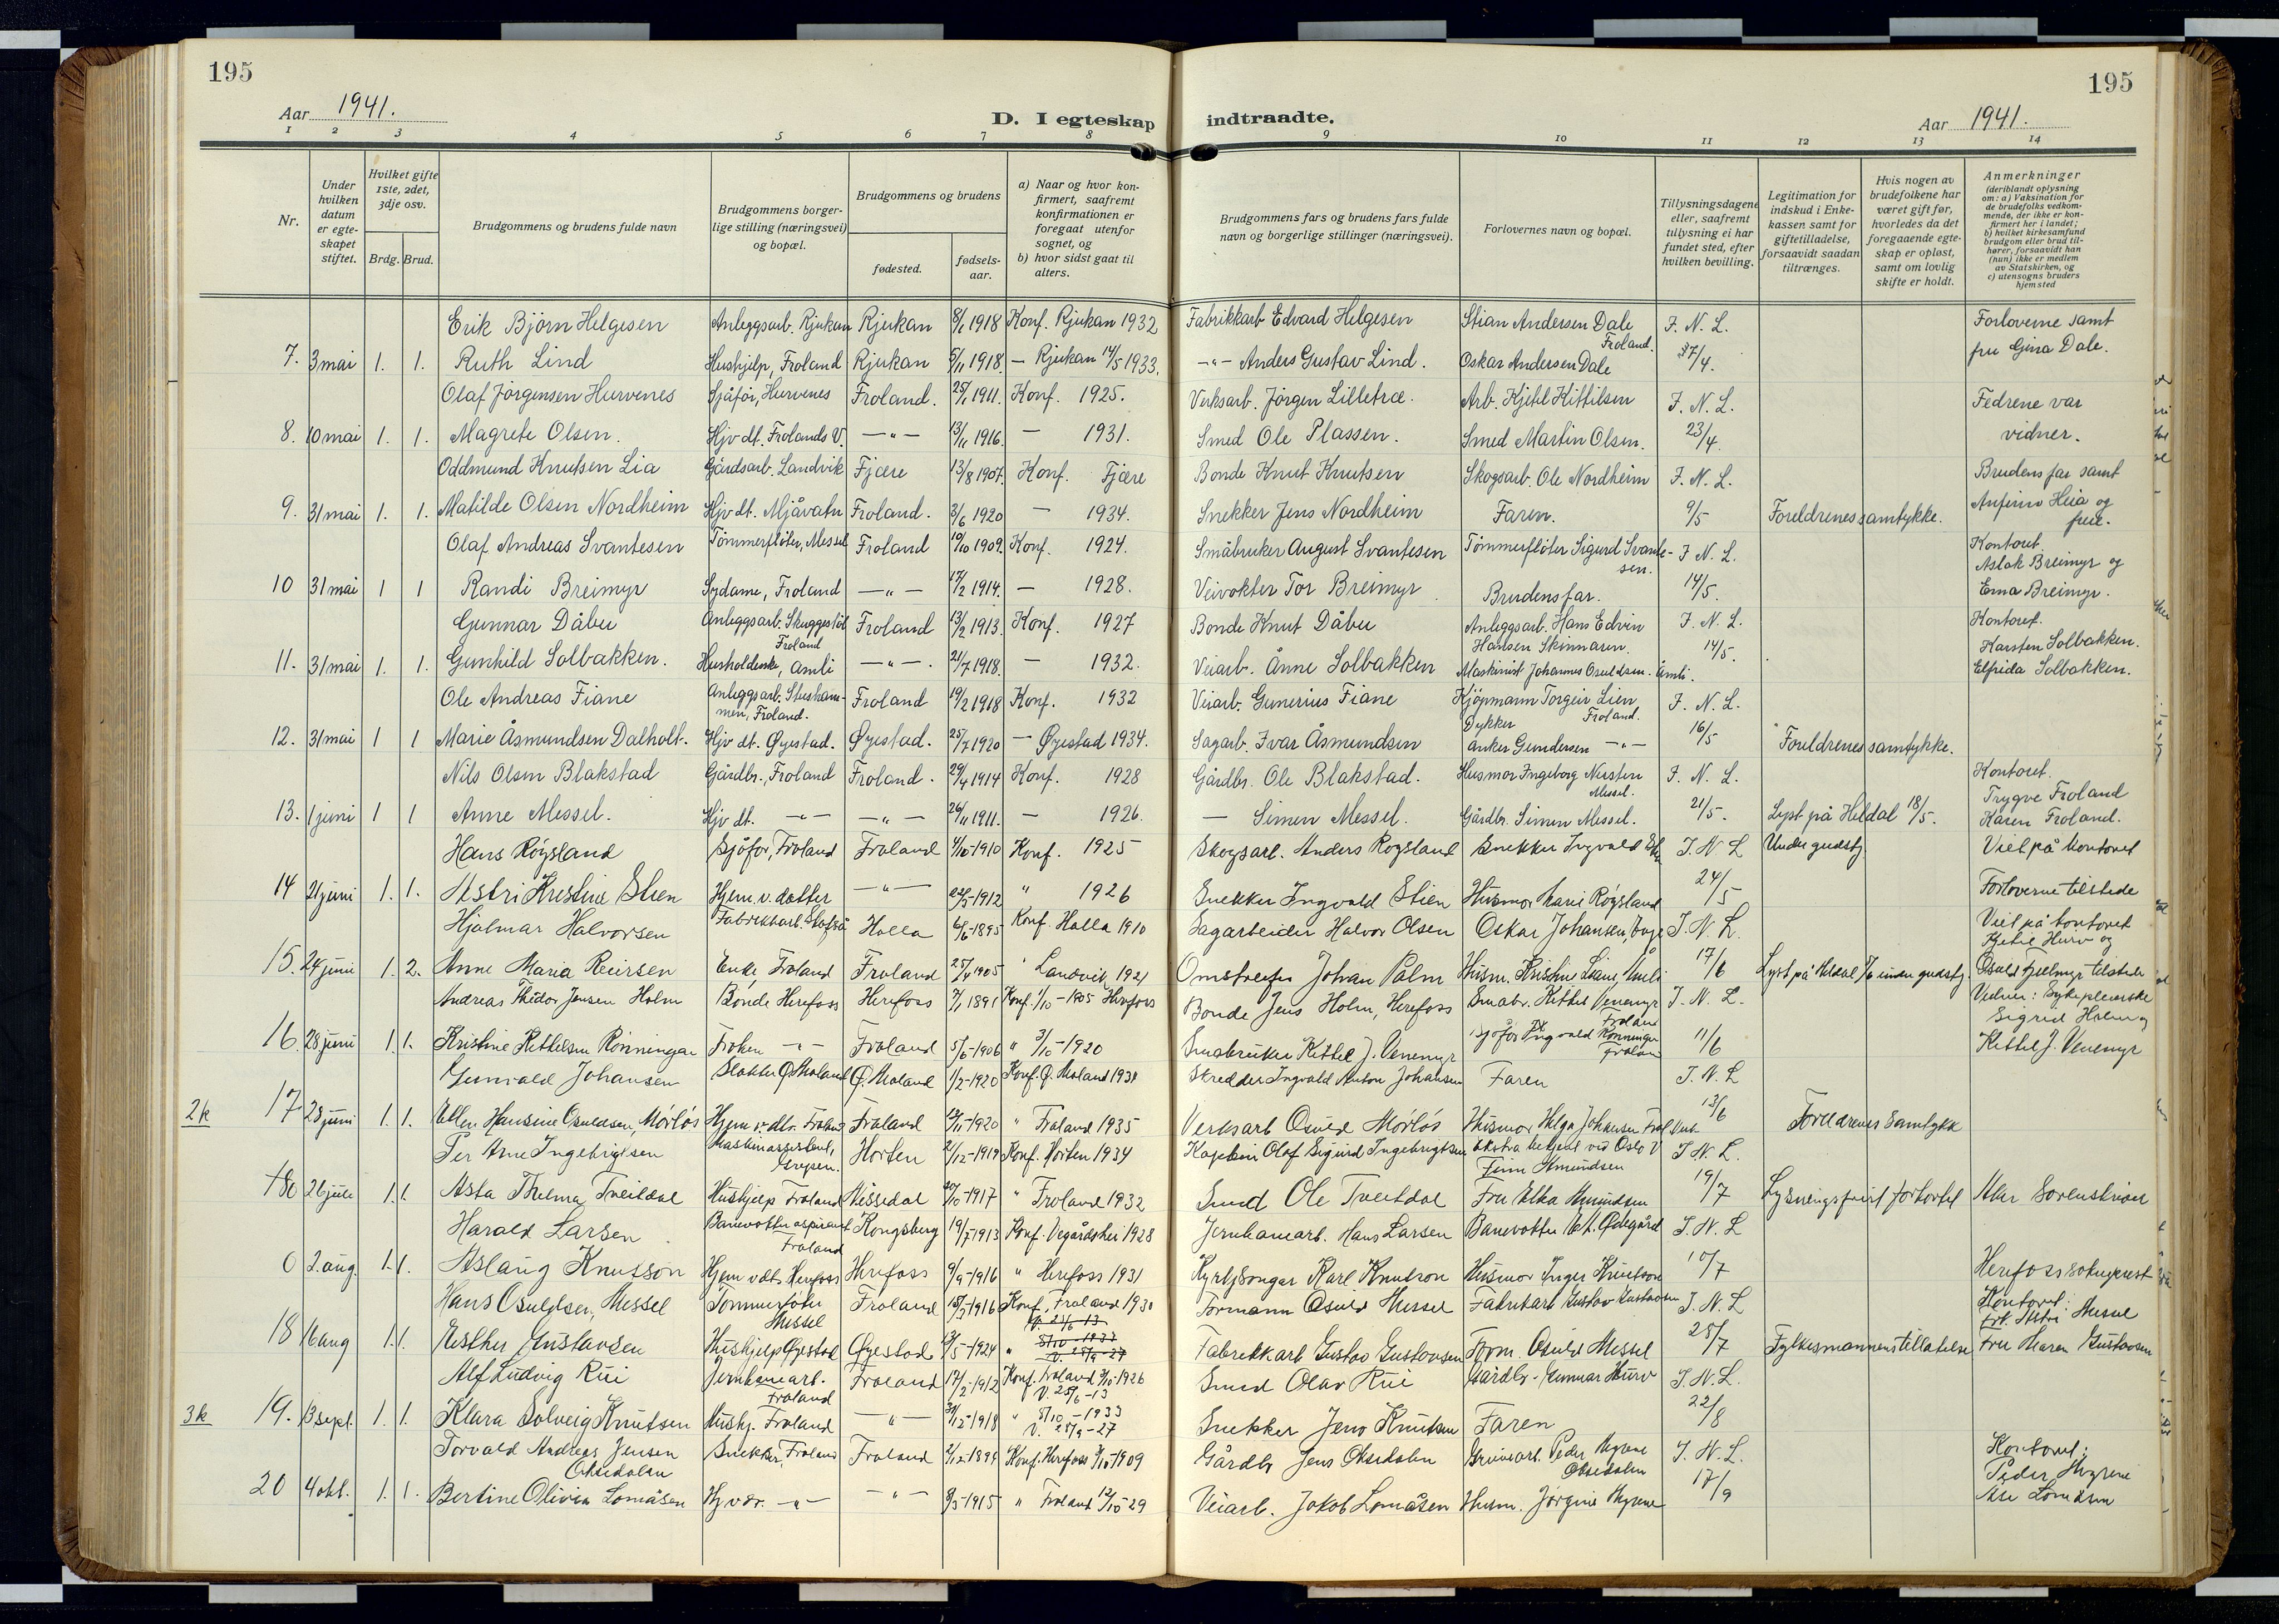 195
195
Aar 1941.
D. I egteskap indtraadte.
Aar 1941.
1 2 3 4 5 6 7 8 9 10 11 12 13 14
Nr.
Under hvilken datum er egte-skapet stiftet.
Hvilket gifte 1ste, 2det, 3dje osv.
Brdg. Brud.
Brudgommens og brudens fulde navn
Brudgommens borger-lige stilling (næringsvei) og bopæl.
Brudgommens og brudens
fødested.
fødsels-aar.
a) Naar og hvor kon-firmert, saafremt konfirmationen er foregaat utenfor sognet, og
b) hvor sidst gaat til alters.
Brudgommens fars og brudens fars fulde navn og borgerlige stillinger (næringsvei).
Forlovernes navn og bopæl.
Tillysningsdagene eller, saafremt tillysning ei har fundet sted, efter hvilken bevilling.
Legitimation for indskud i Enke-kassen samt for giftetilladelse, forsaavidt saadan tiltrænges.
Hvis nogen av brudefolkene har været gift før, hvorledes da det foregaaende egte-skap er opløst, samt om lovlig skifte er holdt.
Anmerkninger
(deriblandt oplysning om: a) Vaksination for de brudefolks vedkom-mende, der ikke er kon-firmert her i landet; b) hvilket kirkesamfund brudgom eller brud til-hører, forsaavidt han (hun) ikke er medlem av Statskirken, og c) utensogns bruders hjemsted
Erik Bjørn Helgesen Anleggsarb. Rjukan Rjukan 8/1 1918 Konf. Rjukan 1932 Fabrikkarb Edvard Helgesen Stian Andersen Dale Froland. F. N. L. Forloverne samt
7. 3 mai 1. 1. Ruth Lind Hushjelp, Froland Rjukan 5/11 1918. — Rjukan 14/5 1933. -"- Anders Gustav Lind. Oskar Andersen Dale /4. fru Gina Dale.
Olaf Jørgensen Hurvenes Sjåfør, Hurvenes Froland. 25/1 1911. Konf. 1925. Verksarb. Jørgen Lilletræ. Arb. Kjetil Kittilsen F. N. L. Fedrene var
8. 10 mai 1. 1. Magrete Olsen. Hjv dt. Frolands V. —"— 13/11 1916. — 1931. Smed Ole Plassen. Smed Martin Olsen. 23/4. vidner.
Oddmund Knutsen Lia Gårdsarb. Landvik Fjære 13/8 1907. Konf. Fjære Bonde Knut Knutsen Skogsarb. Ole Nordheim F. N. L. Brudens far samt
9. 31 mai 1. 1. Matilde Olsen Nordheim Hjv dt. Mjåvatn Froland. 3/6 1920 — 1934. Snekker Jens Nordheim Faren. 9/5 Foreldrenes samtykke. Anfinn Heia og frue.
Olaf Andreas Svantesen Tømmerfløter, Messel Froland 10/10 1909. Konf. 1924. Småbruker August Svantesen Tømmerfløter Sigurd Svante-sen. F. N. L. Kontoret.
Aslak Breimyr og
10 31 mai 1 1 Randi Breimyr Sydame, Froland —"— 17/2 1914. — 1928. Veivokter Tor Breimyr Brudens far. 14/5. Erna Breimyr.
Gunnar Dåbu Anleggsarb. Skuggestøl Froland Froland 13/2 1913. Konf. 1927 Bonde Knut Dåbu Anleggsarb. Hans Edvin Hansen Skinnaren. F. N. L. Kontoret.
Karsten Solbakken.
11. 31 mai 1. 1. Gunhild Solbakken. Husholderske, Åmli —"—. 21/7 1918. — 1932. Veiarb. Ånne Solbakken Maskinist Johannes Osuldsen. Åmli. 14/5. Elfrida Solbakken.
Ole Andreas Fiane Anleggsarb. men, Froland. Froland 19/2 1918 Konf. 1932 Veiarb. Gunerius Fiane Kjøpmann Torgeir Lien Froland. F. N. L.
12. 31 mai 1 1 Marie Åsmundsen Dalholt. Hjv dt. Øyestad. Øyestad. 25/7 1920 — Øyestad 1934. Sagarb. Ivar Åsmundsen Dykker Anker Gundersen —"— 16/5 Foreldrenes samtykke.
Nils Olsen Blakstad Gårdbr., Froland Froland. 29/4 1914 Konf. 1928 Gårdbr. Ole Blakstad. Husmor Ingeborg Nersten Messel. F. N. L. Kontoret.
Trygve Froland
13. 1 juni 1 1 Anne Messel. Hjv dt. —"— —"— 26/11 1911. — 1926. — Simen Messel. Gårdbr. Simen Messel. 21/5. Lyst på Heldal 18/5. Karen Froland.
Hans Røysland Sjåfør, Froland Froland 4/10-1910 Konf. 1925 Skogsarb. Anders Røysland Snekker Ingvald F. N. L Under gudstj. Viet på kontoret
14 21 juni 1. 1. Astri Kristine Stien Hjem. v. datter —"— 22/5-1912 " 1926 Snekker Ingvald Stien Husmor Marie Røysland 24/5 Forloverne tilstede
Hjalmar Halvorsen Fabrikkarb. Holla 6/6-1895 Konf. Holla 1910 Sagarbeider Halvor Olsen Oskar Johansen, F. N. L. Viet på kontoret
Kjetil Hurv og
15. 24 juni 1. 2. Anne Maria Reiersen Enke Froland Froland 25/11 1905 " Landvik 1921 Omstreifer Johan Palm Husm. Kristine Liane, Åmli 17/6 Lyst på Heldal under gudstj. Osuld Fjellmyr tilstede
Andreas Theodor Jensen Holm Bonde Herefoss Herefoss 7/1 1891 Konf. 1/10-1905 Herefoss Bonde Jens Holm, Herefoss Småbr. Kittel Venemyr Froland F. N. L. Vidner: Sykepleierske
Sigrid Holm og
16. 28 juni 1. 1. Kristine Kittelsen Rønningen Frøken —"— Froland 5/6-1906 " 3/10-1920 Småbruker Kittel J. Venemyr Sjåfør Ingvald Rønningen Froland 11/6 Kittel J. Venemyr
Gunvald Johansen Slakter Ø. Moland Ø. Moland 1/2-1920 Konf. Ø. Moland 193 Skredder Ingvald Anton Johansen Faren F. N. L
2k 17 28 juni 1. 1. Ellen Hansine Osuldsen, Mørløs Hjem v. dtr. Froland Froland 12/11-1920 " Froland 1935 Verksarb Osuld Mørløs Husmor Helga Johansen 13/6 Foreldrenes Samtykk
Per Arne Ingebrigtsen Maskinassistent, Horten 2/12-1919 Konf. Horten 1934 Kaptein Olaf Sigurd Ingebrigtsen Ekstra betjent ved Oslo V Finn Amundsen F. N. L.
26 juli 1. 1. Asta Thelma Tveitdal Hushjelp Froland Hissedal 20/10-1917 " Froland 1932 Smed Ole Tveitdal Fru Elka Amundsen 19/7 Lysningsfrist forkortet Aker Sorenskriver
Harald Larsen Banevokteraspirant Froland Kongsberg 19/5-1913 Konf. Vegårdshei 1928 Jernbanearb. Hans Larsen Banevokter Ødegård F. N. L
0 2. aug. 1. 1. Aslaug Knutson Hjem v dt. Herefoss Herefoss 9/9-1916 " Herefoss 1931 Kyrkjesongar Karl Knutson Husmor Inger Knutson 10/7 Herefoss sokneprest
Hans Osuldsen, Messel Tømmerfløter Messel Froland 15/7-1916 Konf. Froland 1930 Formann Osuld Messel Fabrikarb Gustav Gustavsen F. N. L Kontoret:
Frk. Astri Messel
18 16 aug 1. 1. Esther Gustavsen Hushjelp Øyestad Øyestad /5-1924 " Fabrikkarb Gustav Gustavsen Form. Osuld Messel 25/7 Fylkesmannens tillatelse Fru Maren Gustavsen
Alf Ludvig Rui Jernbanearb. Froland Froland 17/2-1912 Konf. Froland 3/10-1926 V. 25/6-13 Smed Olav Rui Gårdbr. Gunnar Hurv F. N. L.
3k 19. 13 sept. 1. 1. Klara Solveig Knutsen Hushj. Froland —"— 3/12-1918 " 8/10-1933 V. 25/9-27 Snekker Jens Knutsen Faren 22/8
Torvald Andreas Jensen Oksedalen Snekker, Froland Froland 2/12-1894 Konf. Herefoss 3/10-1909 Gårdbr Jens Oksedalen Gruvearb. Peder Myrene Oksedalen F. N. L. Kontoret:
Peder Myrene
20 4 okt. 1. 1. Bertine Olivia Lomåsen Hj.v dr. —"— —"— 8/3-1915 " Froland 12/10-29 Veiarb. Jakob Lomåsen Husm. Jørgine Myrene 17/9 Lomåsen